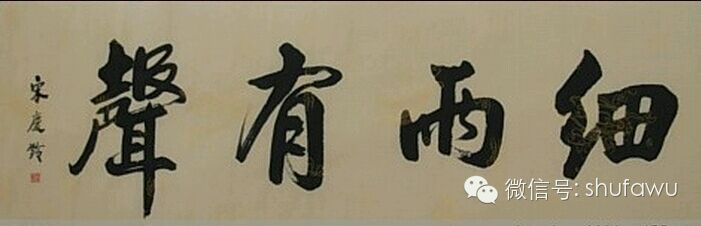 細雨有聲
宋慶齡
微信号: shufawu